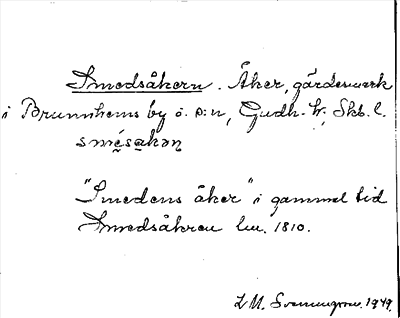 Smedsåkern. Åker, gärdesverk
i Brunnhems by o. s:n, Gudh. h., Skb. l.
smésakən
"Smedens åker" i gammel tid
Smedsåkren lm. 1810.
L. M. Svenungsson. 1949.